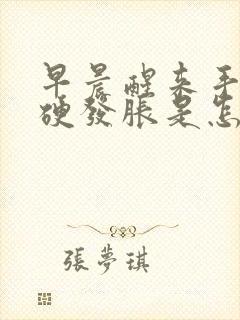 早晨醒来手
硬發脹是怎
張夢琪